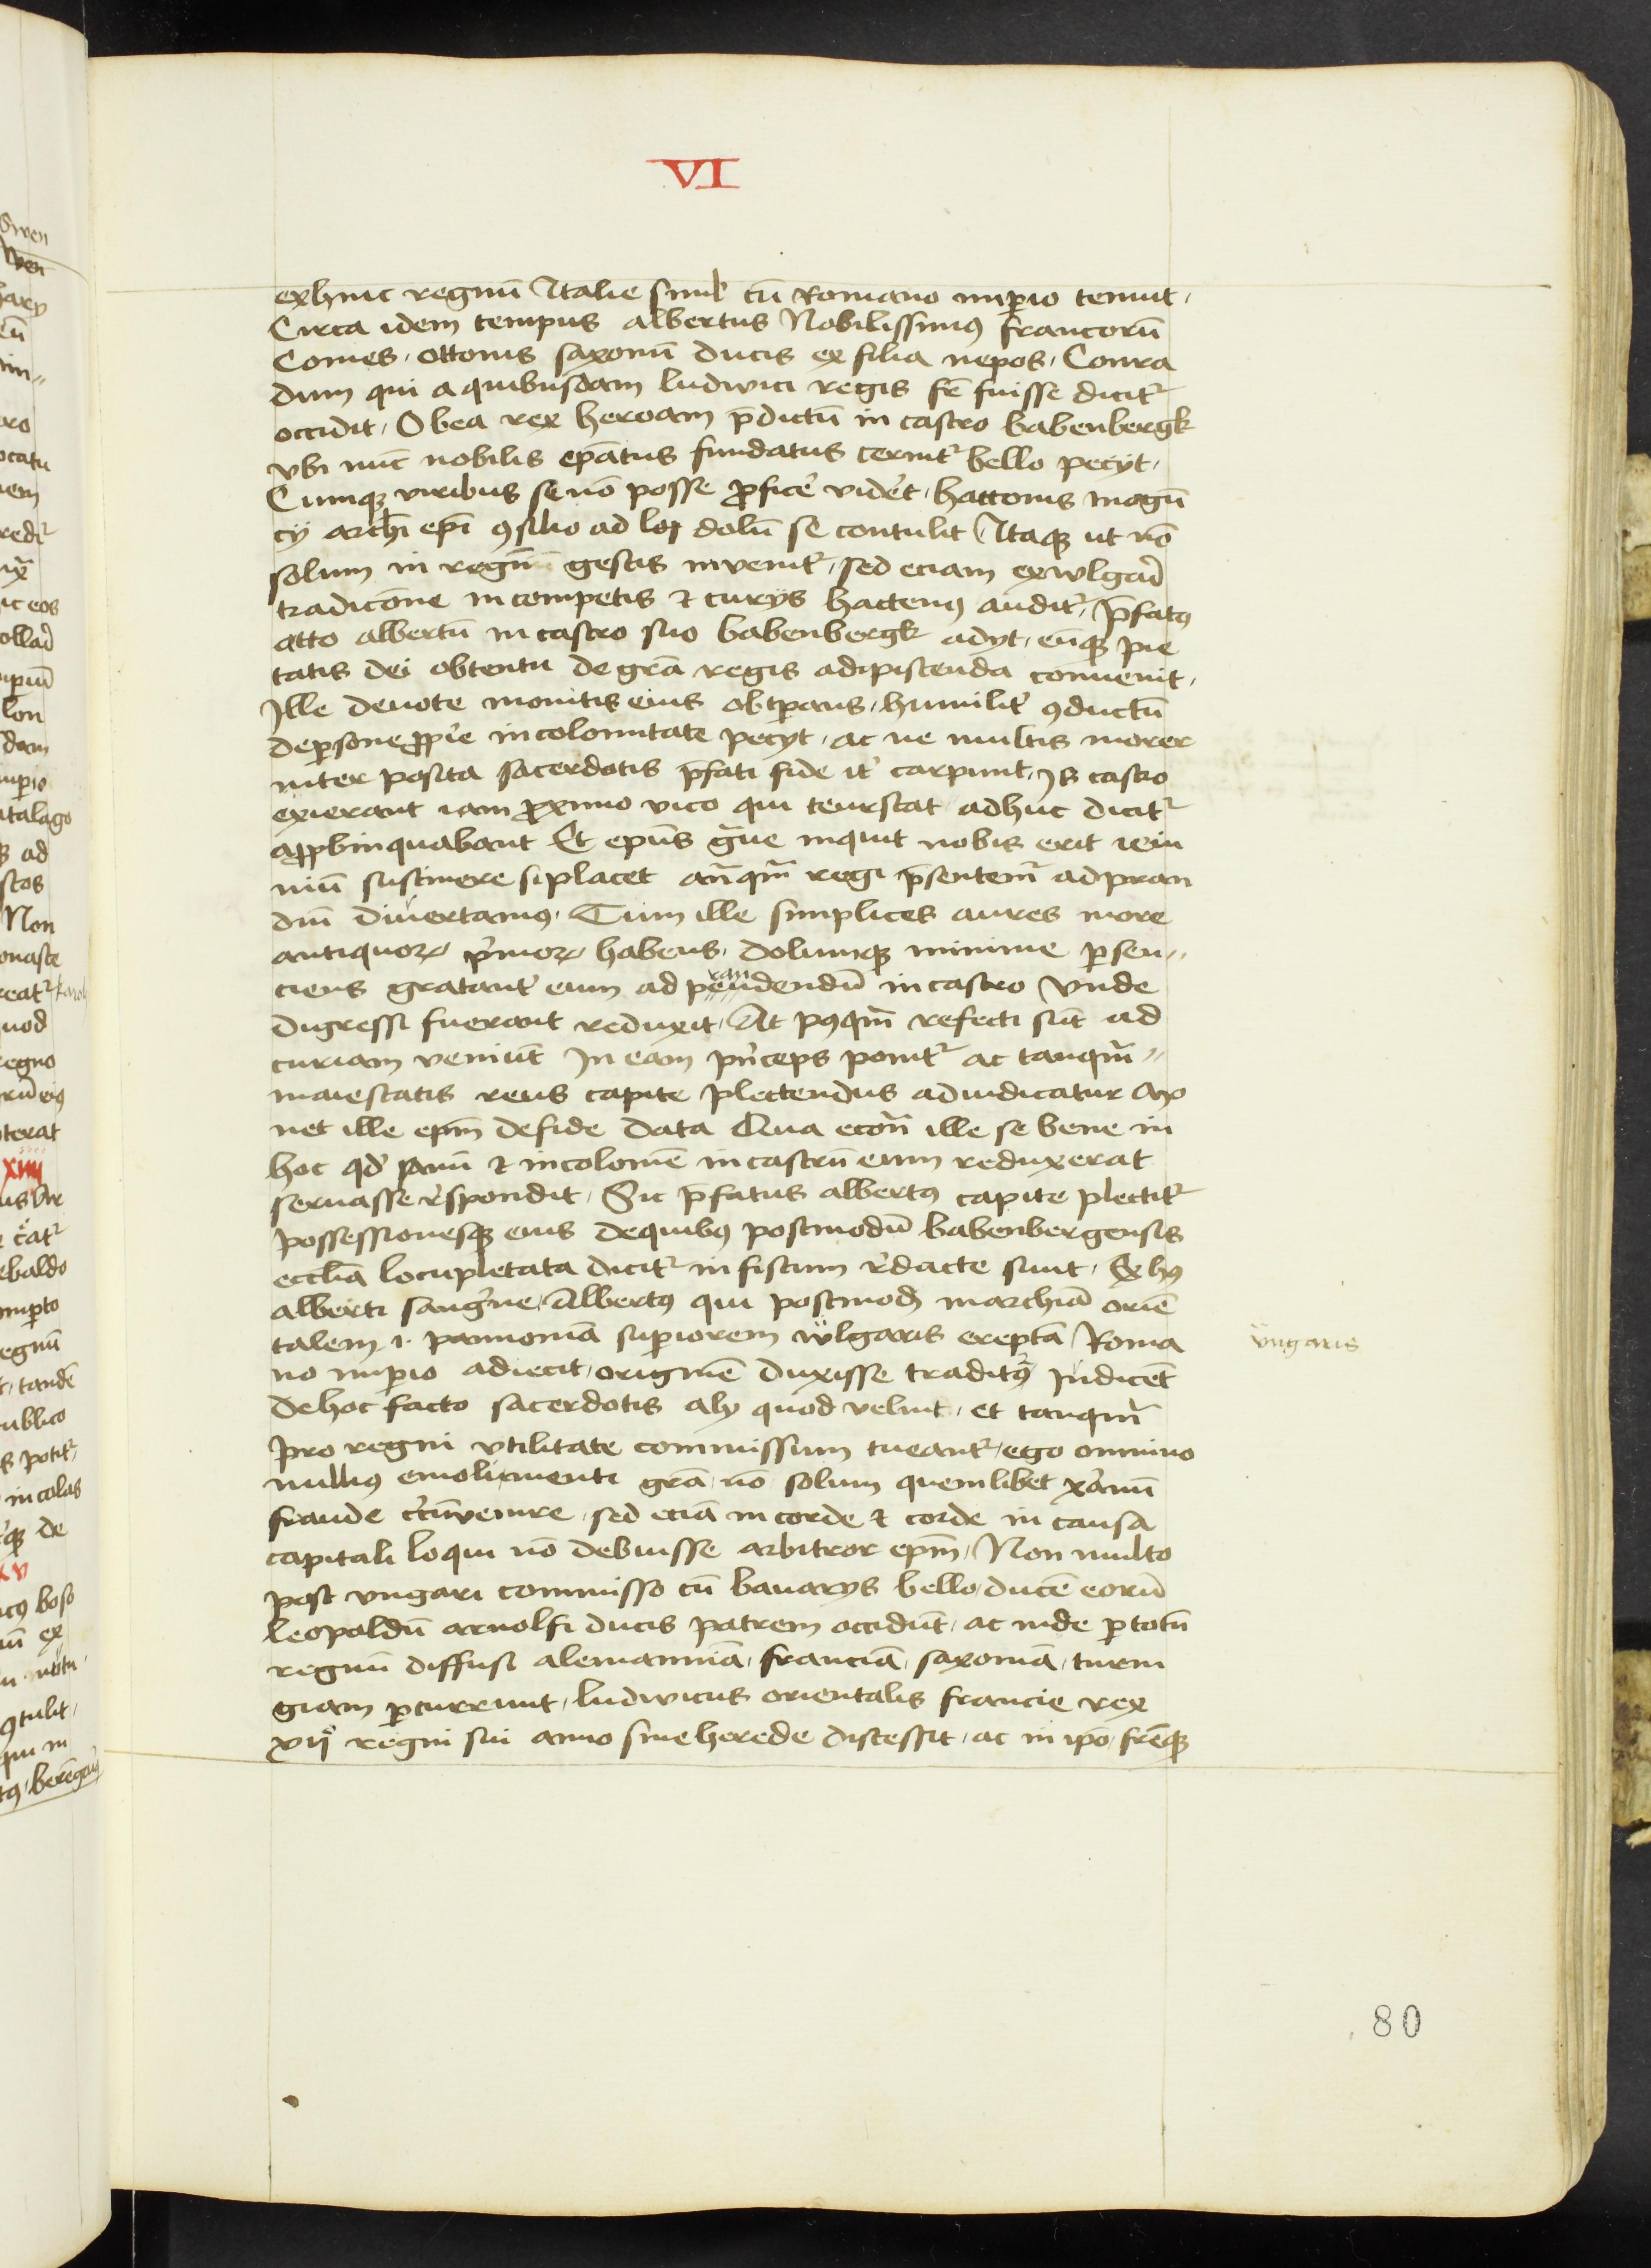 VI
exhinc regnū Italie simł cū Romano imꝑio tenuit,
Circa idem tempus albertus Nobilissimꝰ francorū
Comes, ottonis saxonū ducis ex filia nepos, Conra
dum qui a quibusdam ludwici regis fr̄ fuisse dicit᷑
occidit, Obea rex heroam p̄dictū in castro babenbergk
vbi nūc nobilis ep̄atus fundatus cernit᷑ bello pecÿt,
Cumqꝫ viribus se nō posse ꝓficē videt̄, hattonis magū
cÿ archi ep̄i ꝯsilio ad dolū se contulit, Itaqꝫ ut nō
solum in regū gestis invenit᷑, sed etiam exwlgari
tradicōne in competis ⁊ curÿs hactenꝰ audit᷑, p̄fatꝰ
atto albertū in castro suo babenbergk adÿt, eūqꝫ pie
tatis dei obtentu de grā regis adipiscenda convenit,
Ille devote monitis eius obtꝑans, humilit̄ ꝯductū
de ꝑsone ꝓpie incolomitate pecÿt, ac ne multis morer
inter posita sacerdotis p̄fati fide it̄ carpunt, Is castro
exierant iam ꝓximo vico qui teurstat adhuc dicit᷑
apꝓbinquabant Et ep̄us g̃ue inquit nobis erit ieiu
niū sustinere si placet an̄qm̄ regi p̄sentem᷑ ad pran
diū divertamꝰ, Tum ille simplices aures more
antiquoꝝ p̄moꝝ habens, dolumqꝫ minime ꝑsen„
ciens gratant̄ eum ad prandendū in castro Vnde
digressi fuerant reduxit, At pꝰqm̄ refecti sūt ad
curiam veniūt In eam p̄nceps ponit᷑ ac tanqm̄„
maiestatis reus capite plectendus adiudicatur Mo
net ille ep̄m de fide data Qua econ̄ ille se bene in
hoc qd̄ sanū ⁊ incolomē in castrū eum reduxerat
servasse r̄spondit, Sic p̄fatus albertꝰ capite plectit᷑
possessionesqꝫ eius de quibꝰ postmodū babenbergensis
eccłia locupletata dicit᷑ in fiscum r̄dacte sunt, Ex hꝰ
alberti sangᷣne, Albertꝰ qui postmod̄ marchiā oriē
talem .i. pannoniā suꝑiorem wlgaris ereptā Roma
no imꝑio adiecit, originē duxisse tradit᷑, Iudicēt
de hoc facto sacerdotis alÿ quod velint, et tanqm̄
pro regni vtilitate commissum tueant᷑, ego omnino
nullius emolumenti grā, nō solum quemlibet x̄anū
fraude c̄cūvenire, sed etiā in corde ⁊ corde in causa
capitali loqui nō debuisse arbitror ep̄m, Non multo
post vngari commisso cū bavarÿs bello, ducē eorū
leopaldū arnolfi ducis patrem occidūt, ac inde ꝑ totū
regnū diffusi alemanniā, franciā, saxoniā, turin
giam ꝑcurrunt, ludwicus orientalis francie rex
xijº regni sui anno sine herede discessit, ac in ip̄o, frēqꝫ
vngaris
80